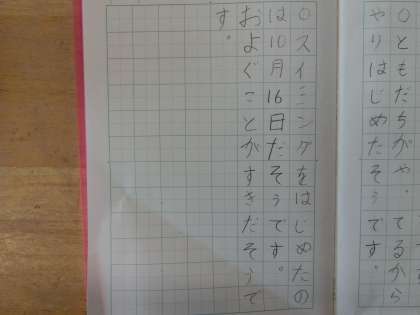 ○ともだちがや、てるから
やりはじめたそうです。
○スイミングをはじめたの
は10月16日だそうです。
およぐことがすきだそうで
す。